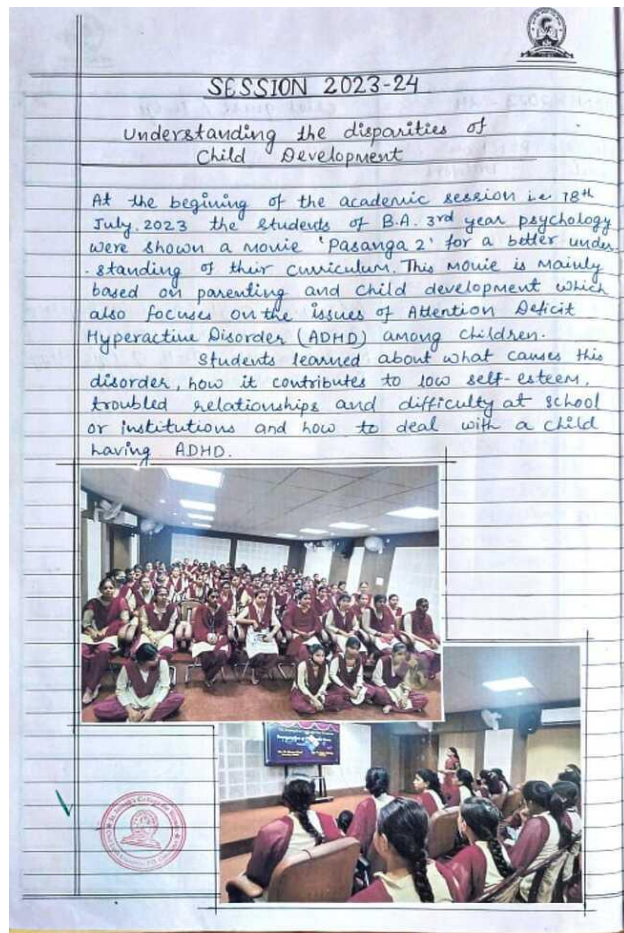 SESSION 2023-24
Understanding the disparities of
Child Development
At the begining of the academic session i.e 18th
July, 2023 the students of B.A. 3rd year psychology
were shown a movie 'Pasanga 2' for a better under-
-standing of their curriculum. This movie is mainly
based on parenting and child development which
also focuses on the issues of Attention Deficit
Hyperactive Disorder (ADHD) among children.
Students learned about what causes this
disorder, how it contributes to low self-esteem,
troubled relationships and difficulty at school
or institutions and how to deal with a child
having ADHD.